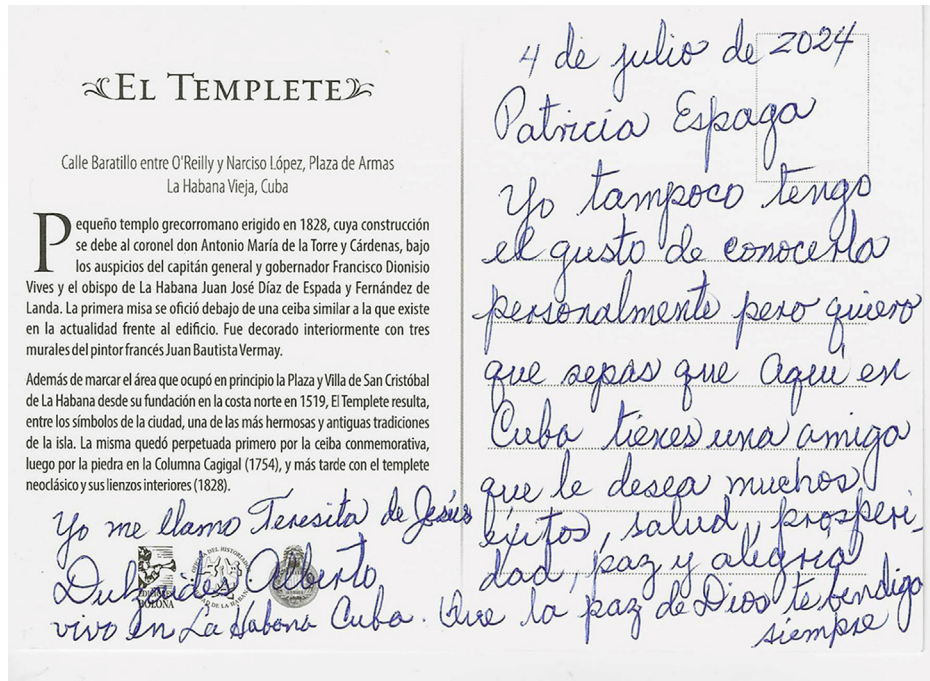 EL TEMPLETE
Calle Baratillo entre O'Reilly y Narciso López, Plaza de Armas
La Habana Vieja, Cuba
Pequeño templo grecorromano erigido en 1828, cuya construcción
se debe al coronel don Antonio María de la Torre y Cárdenas, bajo
los auspicios del capitán general y gobernador Francisco Dionisio
Vives y el obispo de La Habana Juan José Díaz de Espada y Fernández de
Landa. La primera misa se ofició debajo de una ceiba similar a la que existe
en la actualidad frente al edificio. Fue decorado interiormente con tres
murales del pintor francés Juan Bautista Vermay.
Además de marcar el área que ocupó en principio la Plaza y Villa de San Cristóbal
de La Habana desde su fundación en la costa norte en 1519, El Templete resulta,
entre los símbolos de la ciudad, una de las más hermosas y antiguas tradiciones
de la isla. La misma quedó perpetuada primero por la ceiba conmemorativa,
luego por la piedra en la Columna Cagigal (1754), y más tarde con el templete
neoclásico y sus lienzos interiores (1828).
Yo me llamo Teresita de Jesús
Alberto
vivo en La Habana Cuba. Que la paz de Dios te bendiga
siempre
EDICIONES
BOLOÑA
4 de julio de 2024
Patricia Espaga
Yo tampoco tengo
el gusto de conocerla
personalmente pero quiero
que sepas que Aquí en
Cuba tienes una amiga
que le desea muchos
éxitos, salud, prosperi-
dad, paz y alegría